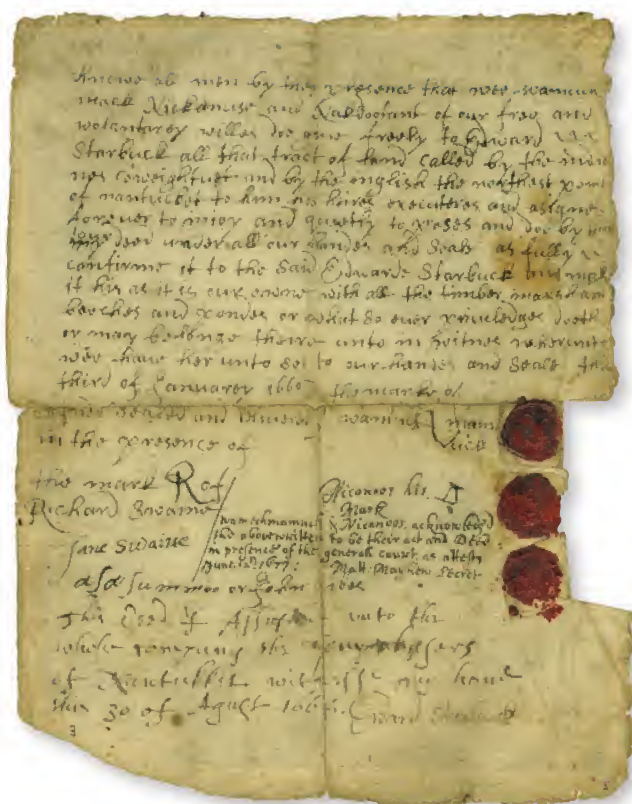 Knowe all men by these presence that wee wannnn
mack Nickanuse and of our free and
volentarey willes doe give freely to Edward
Starbuck all that tract of land called by the indie
nes coweightuet and by the english the northest point
of nantucket to him his heires executeres and asigne
forever to injoy and quietly to poses and doe by
deed under all our handes and Seals as fully
confirme it to the Said Edwarde Starbuck and make
it his as it is our owne with all the timber marsh and
beeches and pondes or what so ever priviledges doeth
or may belonge theire unto in witnes wherunto
wee have her unto set to our handes and Seals the
third of Januarey 1660 the marke of
signed sealed and wanack
in the presence of
the mark R of
Richard Swaine
Jane Swaine
Niconoos his
Mark
wanachmamack & Niconoos acknowledged
the abovewritten to be their act and Deed
in presence of the generall court as attests
June 12 1677: Matt: Mayhew Secret
or John
This Deed I Assigne unto the
whole company the
of Nantuckket witnesse my hand
this 30 of Agust 166 Edward Starbuck
3
5